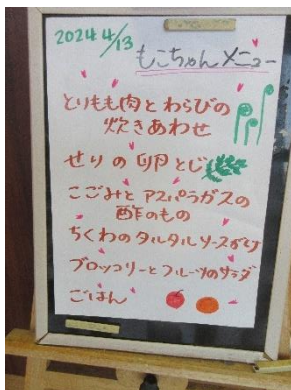 2024 4/13
もこちゃんメニュー
とりもも肉とわらびの
炊きあわせ
せりの卵とじ
こごみとアスパラガスの
酢のもの
ちくわのタルタルソースがけ
ブロッコリーとフルーツのサラダ
ごはん